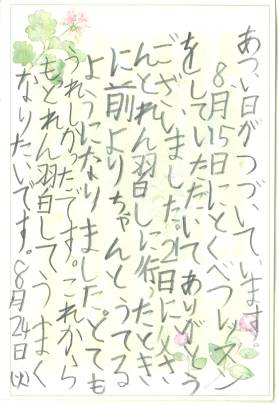 あつい日がつづいています。
8月15日にとくべつレッスン
をしていただいてありがとう
ございました。21日に父さ
んとれん習しに行ったとき
に前よりちゃんとうてる
ようになりました。とても
うれしかったです。これから
もどれん習してうまく
なりたいです。8月24日(火)